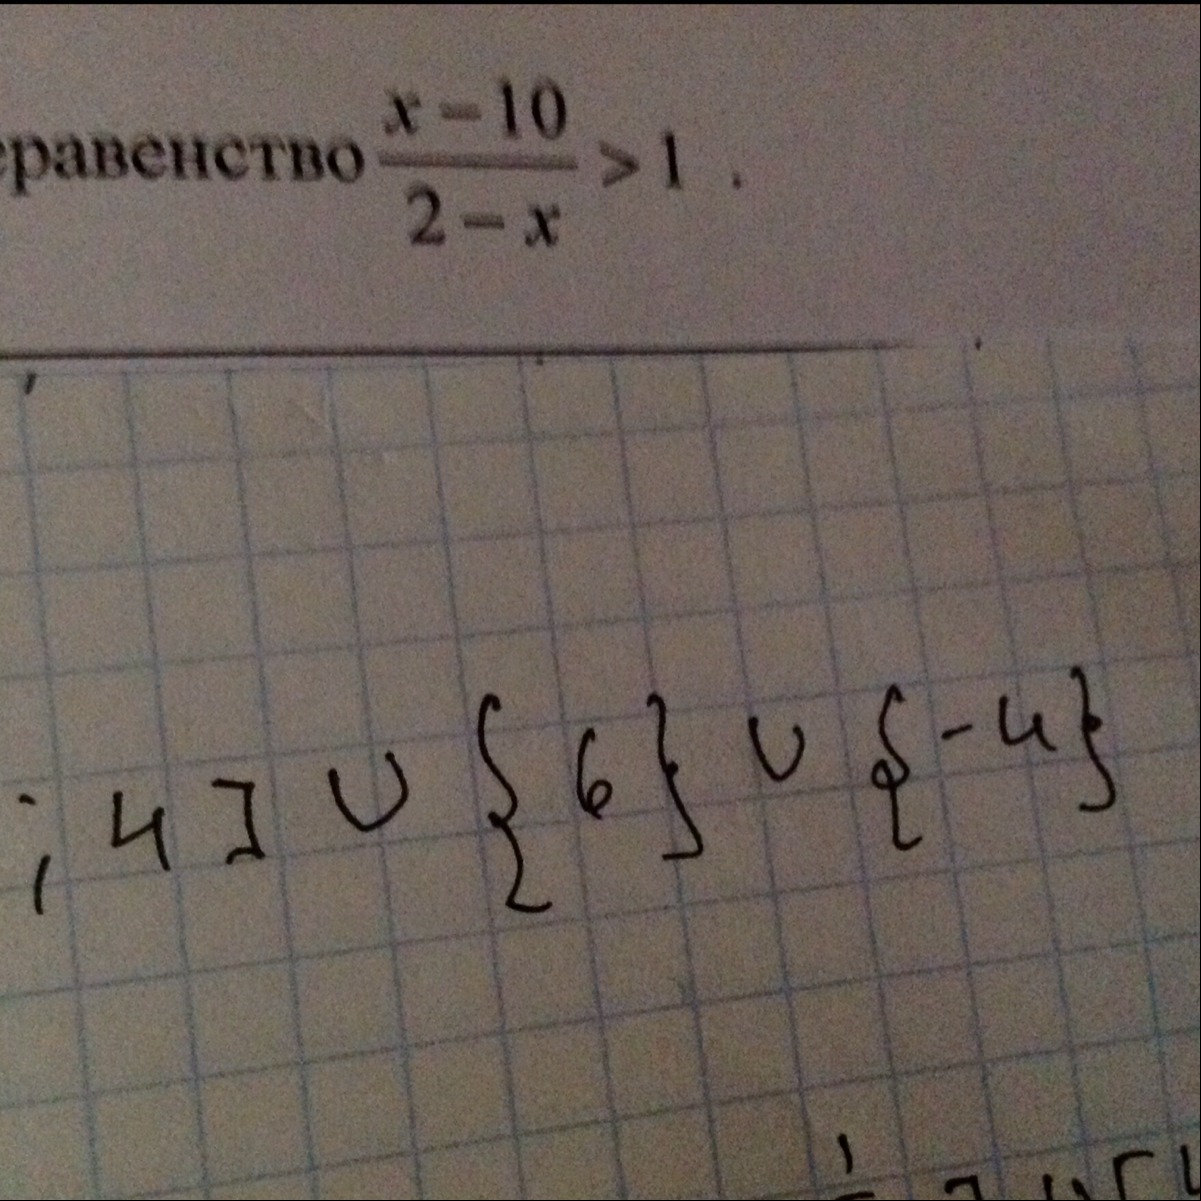 еравенство \frac{x-10}{2-x} > 1 .
; 4 ] ∪ { 6 } ∪ { -4 }